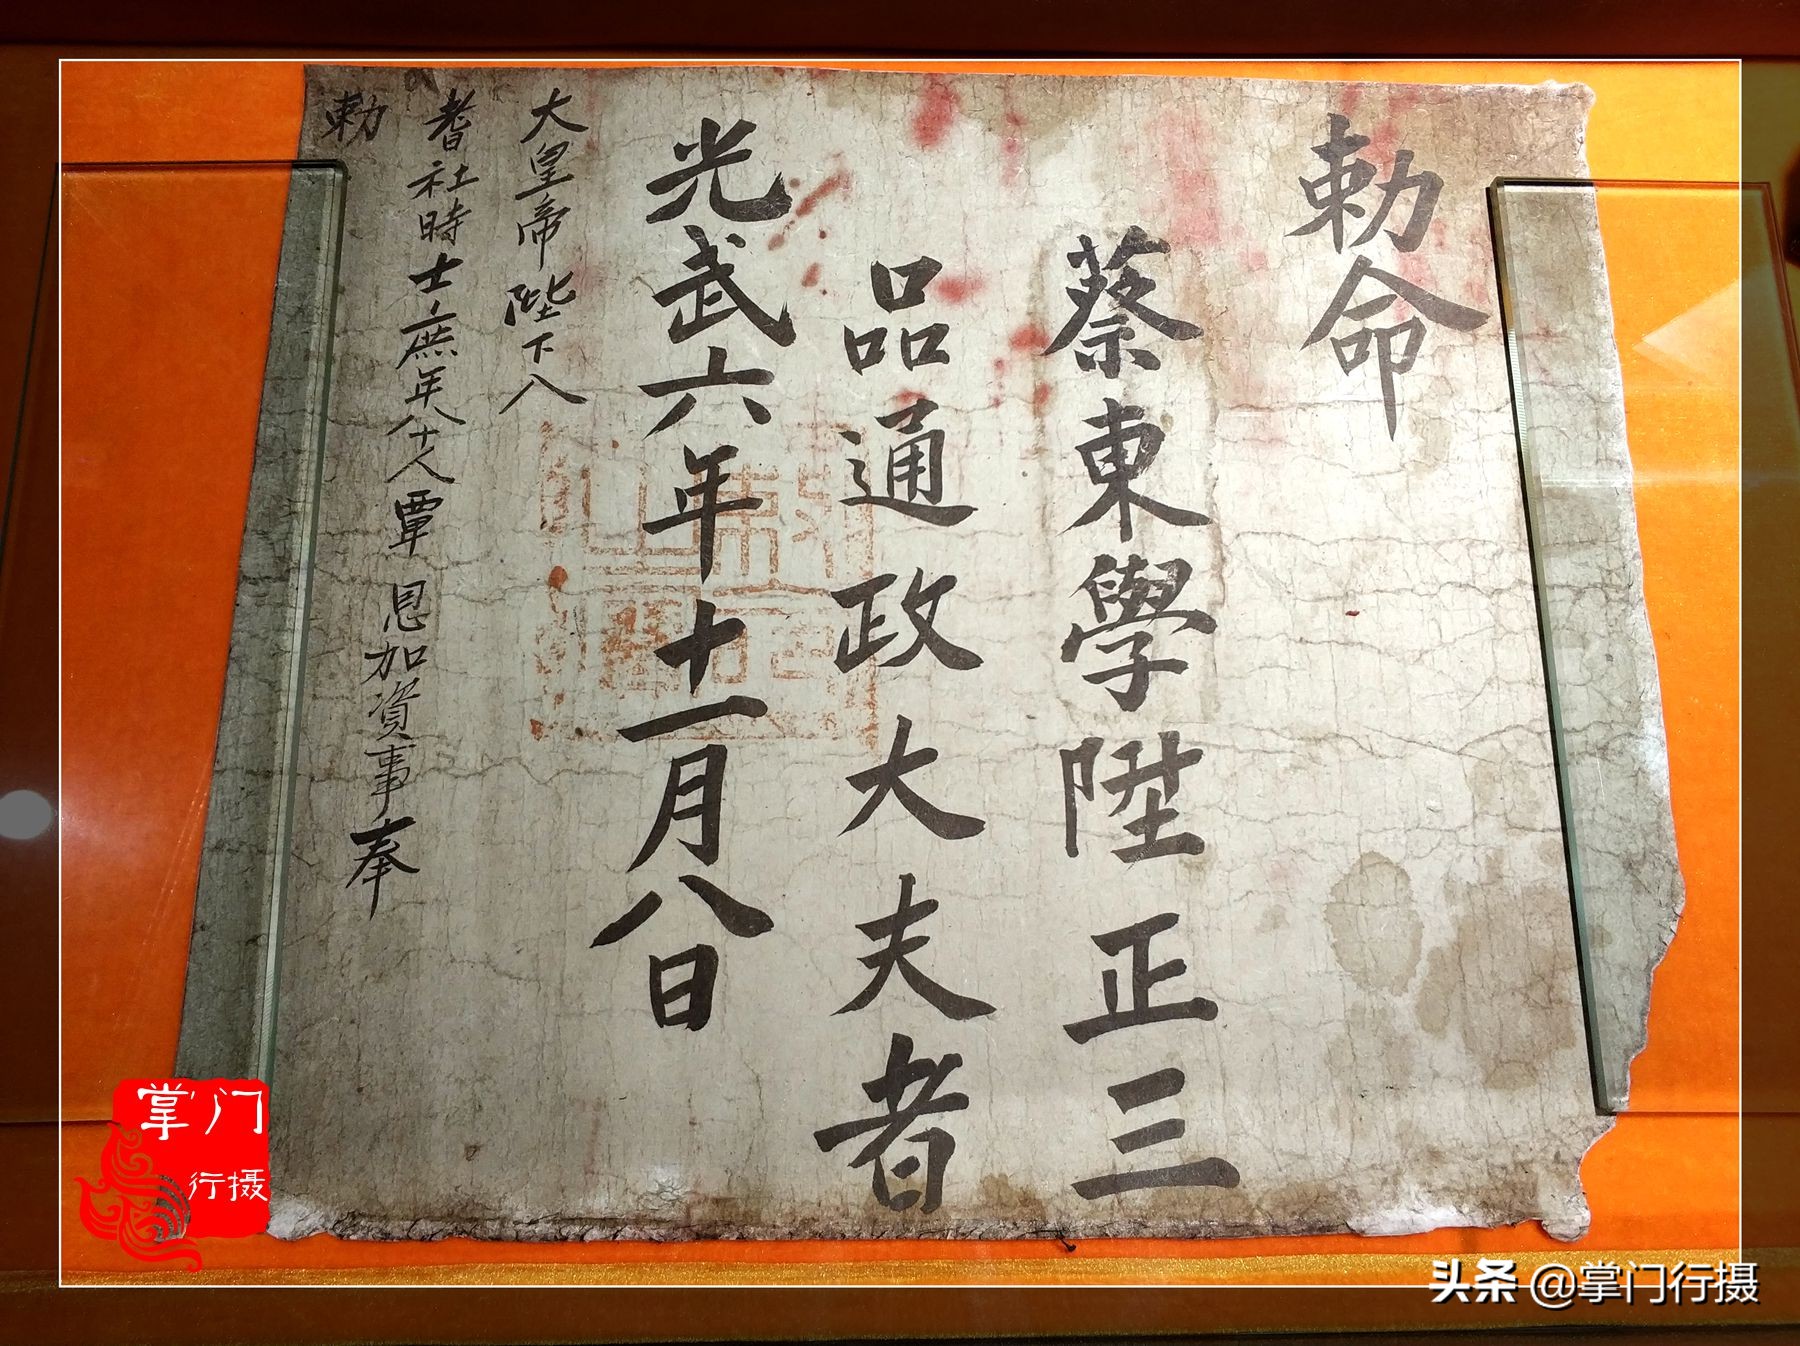 勅命
蔡東學陞正三
品通政大夫者
光武六年十一月八日
大皇帝陛下入
耆社時士庶年八十人覃恩加資事奉
勅
掌门
行摄
头条 @掌门行摄